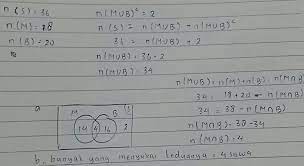 n(S) = 36
n(M) = 18
n(B) = 20
n(M∪B)ᶜ = 2
n(S) = n(M∪B) + n(M∪B)ᶜ
36 = n(M∪B) + 2
n(M∪B) = 36 - 2
n(M∪B) = 34
n(M∪B) = n(M) + n(B) - n(M∩B)
34 = 18 + 20 - n(M∩B)
34 = 38 - n(M∩B)
n(M∩B) = 38 - 34
n(M∩B) = 4
a.
M B (S)
14 4 16 2
b. banyak yang menyukai keduanya = 4 siswa